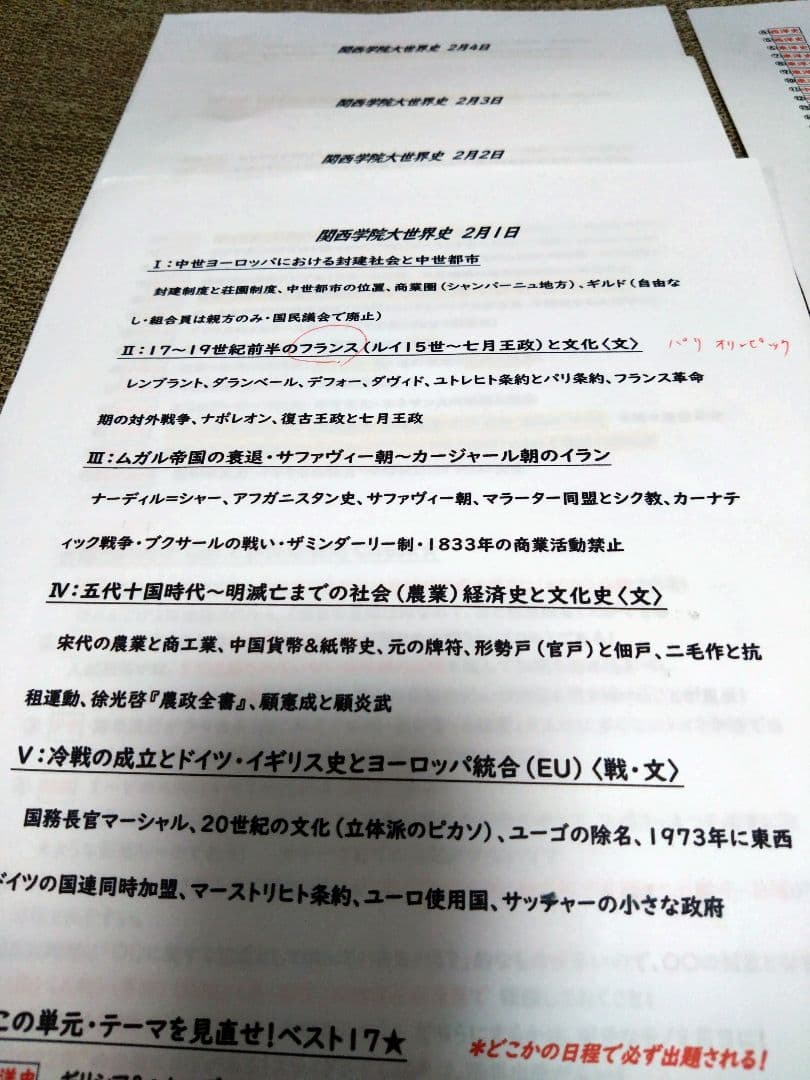 関西学院大世界史 2月4日
関西学院大世界史 2月3日
関西学院大世界史 2月2日
関西学院大世界史 2月1日
Ⅰ:中世ヨーロッパにおける封建社会と中世都市
封建制度と荘園制度、中世都市の位置、商業圏(シャンパーニュ地方)、ギルド(自由な
し・組合員は親方のみ・国民議会で廃止)
Ⅱ:17~19世紀前半のフランス(ルイ15世~七月王政)と文化〈文〉 パリ オリンピック
レンブラント、ダランベール、デフォー、ダヴィド、ユトレヒト条約とパリ条約、フランス革命
期の対外戦争、ナポレオン、復古王政と七月王政
Ⅲ:ムガル帝国の衰退・サファヴィー朝~カージャール朝のイラン
ナーディル=シャー、アフガニスタン史、サファヴィー朝、マラーター同盟とシク教、カーナテ
ィック戦争・ブクサールの戦い・ザミンダーリー制・1833年の商業活動禁止
Ⅳ:五代十国時代~明滅亡までの社会(農業)経済史と文化史〈文〉
宋代の農業と商工業、中国貨幣&紙幣史、元の牌符、形勢戸(官戸)と佃戸、二毛作と抗
租運動、徐光啓『農政全書』、顧憲成と顧炎武
Ⅴ:冷戦の成立とドイツ・イギリス史とヨーロッパ統合(EU)〈戦・文〉
国務長官マーシャル、20世紀の文化(立体派のピカソ)、ユーゴの除名、1973年に東西
ドイツの国連同時加盟、マーストリヒト条約、ユーロ使用国、サッチャーの小さな政府
この単元・テーマを見直せ!ベスト17★
*どこかの日程で必ず出題される!